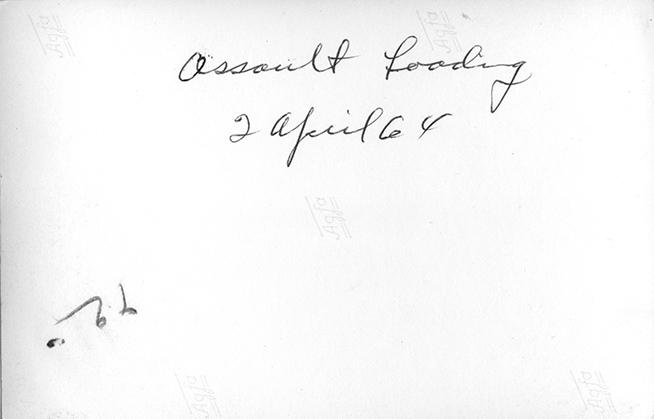 Assault Loading
2 April 64
Agfa
Agfa
Agfa
Agfa
Agfa